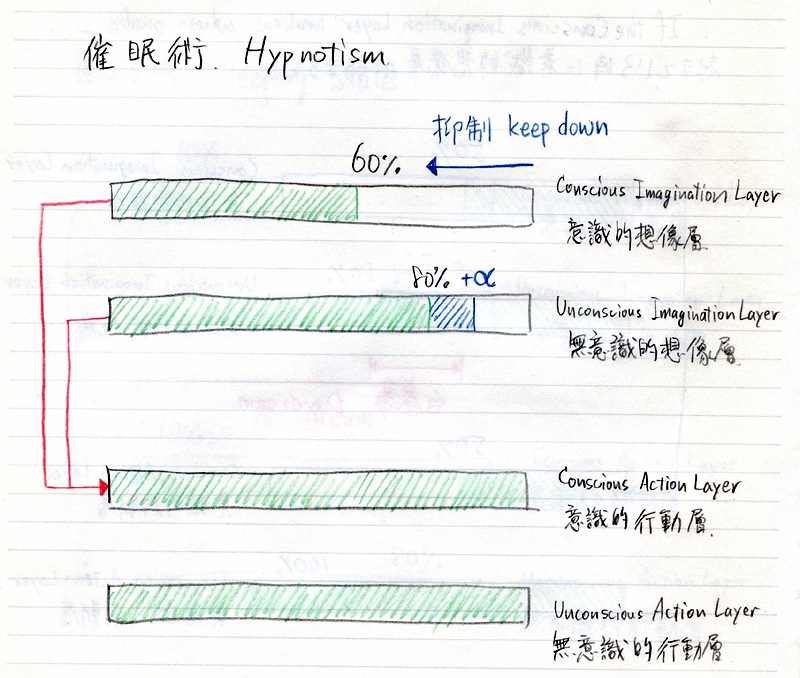 催眠術. Hypnotism.
抑制 keep down
60%
Conscious Imagination Layer
意識的想像層
80% +α
Unconscious Imagination Layer
無意識的想像層
Conscious Action Layer
意識的行動層.
Unconscious Action Layer
無意識的行動層